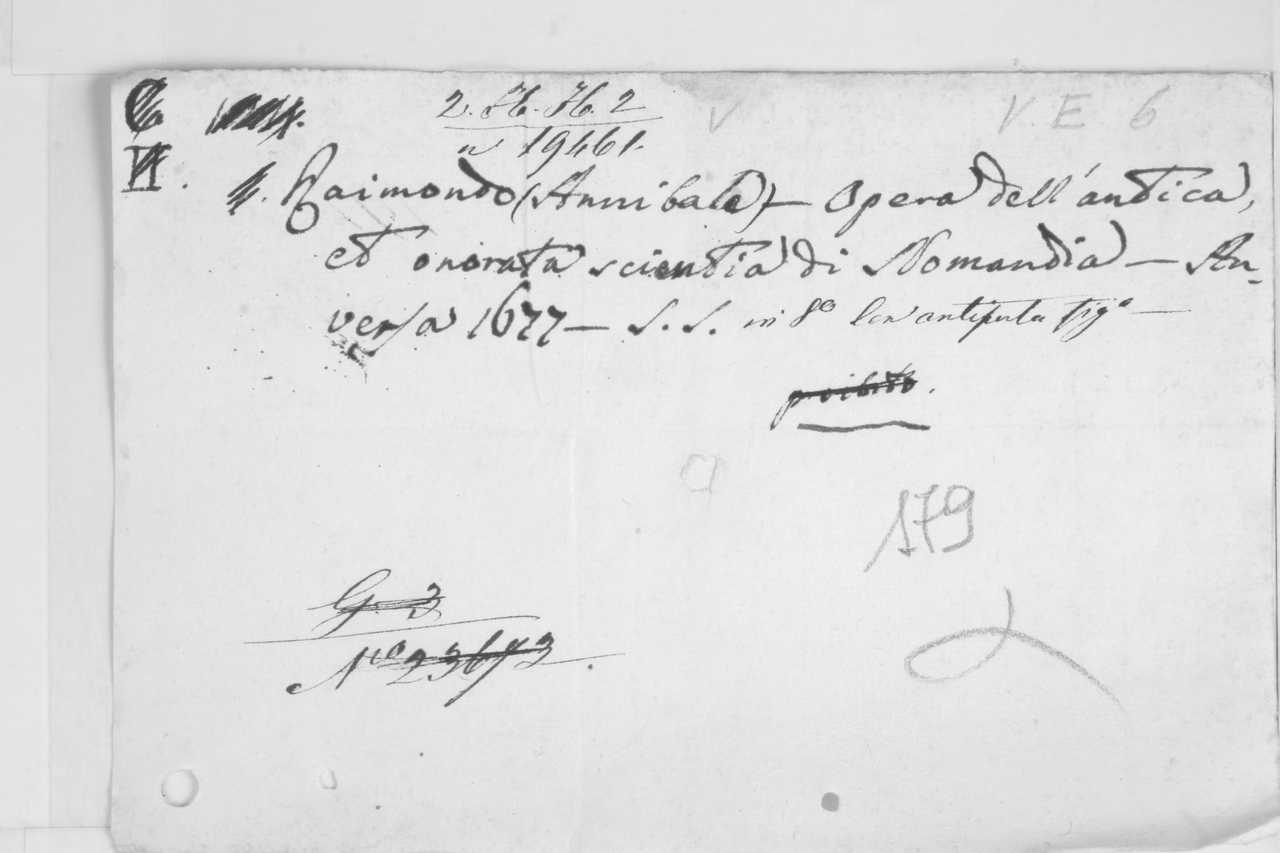 2. H. H. 2
V
V. E 6
n 19461.
VI.
Raimondo (Annibale) — Opera dell'antica,
et onorata scientia di Nomandia — An-
versa 1677 — S. S. in 8º con antiporta figª —
proibito.
179
G. 3
Nº 23673.